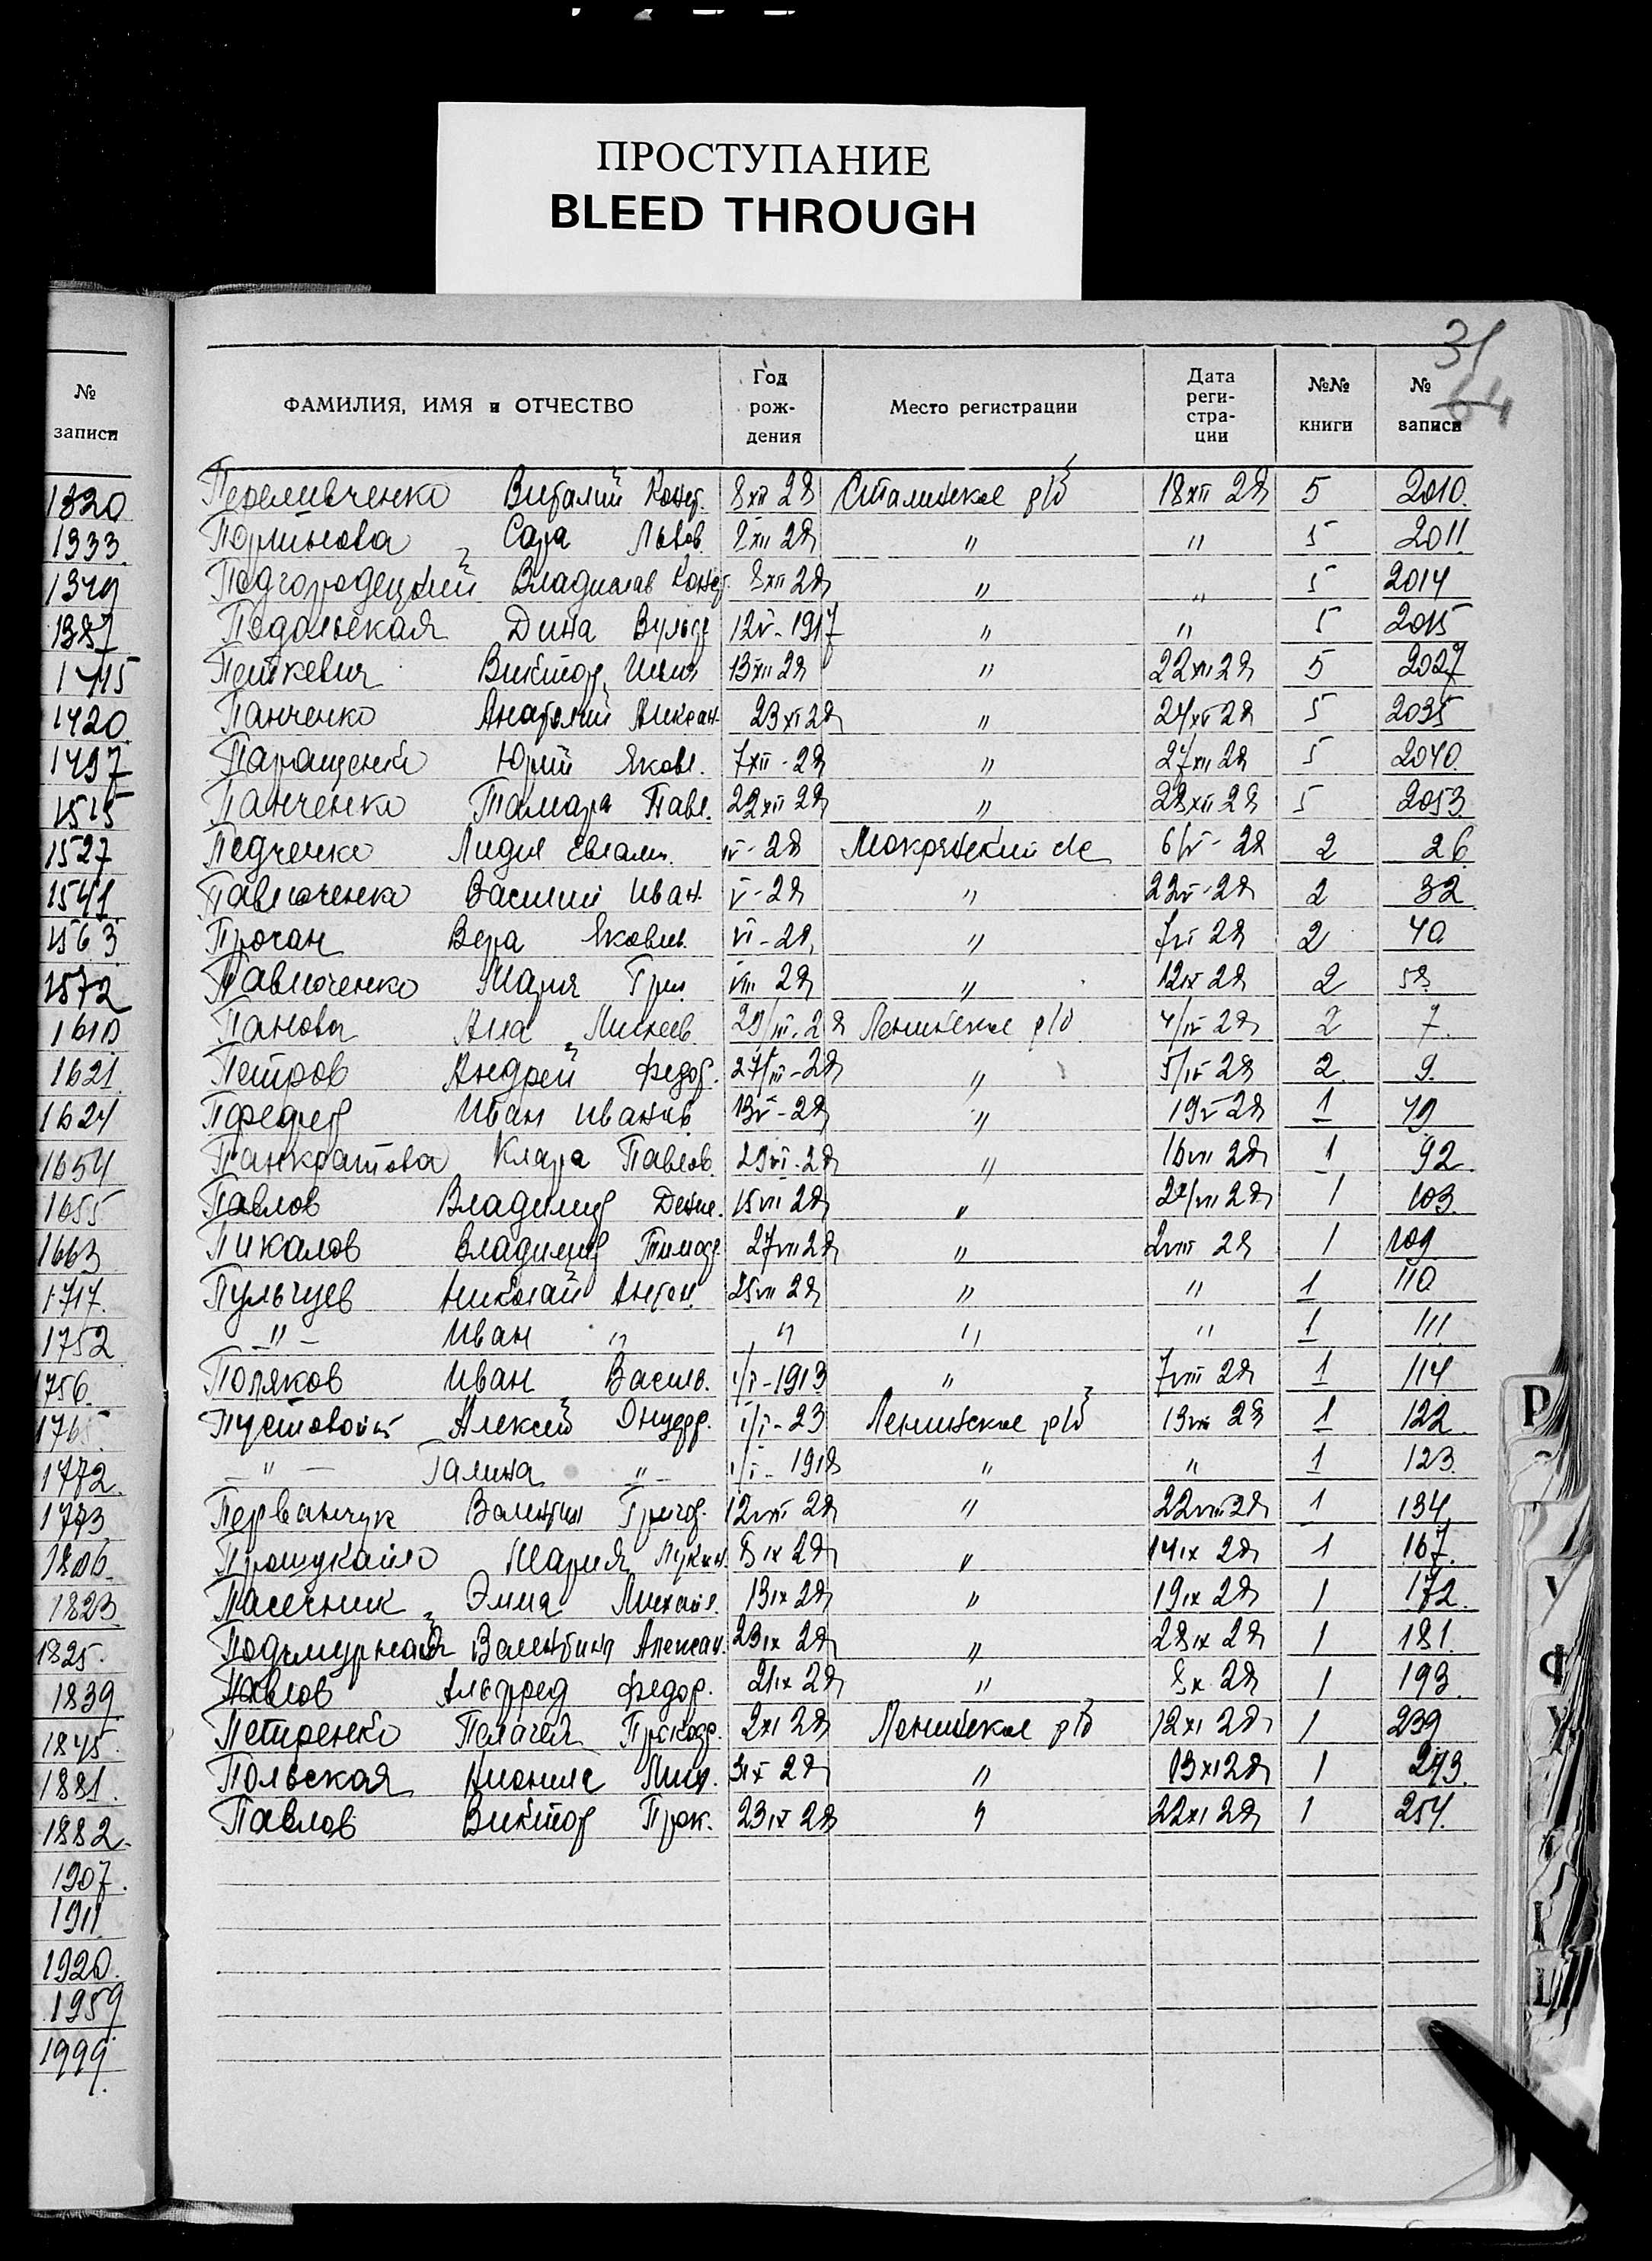 ПРОСТУПАНИЕ
BLEED THROUGH
31
64
№ записи
ФАМИЛИЯ, ИМЯ и ОТЧЕСТВО Год рож- дения Место регистрации Дата реги- стра- ции №№ книги № записи
1320 Переливченко Виталий Конст. 8 XII 28 Сталинское р/б 18 XII 28 5 2010.
1333. Сара Львов. 8 XII 28 " " 5 2011.
1349 Подгородецкий Владислав Конст. 8 XII 28 " " 5 2014
1387 Подольская Дина Вульф 12 V - 1917 " " 5 2015
1415 Виктор 13 XII 28 " 22 XII 28 5 2027
1420. Панченко Анатолий Алексан. 23 XI 28 " 24 XII 28 5 2035
1497 Паращенко Юрий Яковл. 7 XII - 28 " 27 XII 28 5 2040.
1515 Панченко Тамара Павл. 22 XII 28 " 28 XII 28 5 2053.
1527 Педченко Лидия IV - 28 Мокрянский с/с 6/V - 28 2 26
1541. Павлюченко Василий Иван. V - 28 " 22 V - 28 2 32
1563 Прочан Вера Яковл. VI - 28 " 7 VI 28 2 40
1572 Павлюченко Мария Григ. VIII 28 " 12 IX 28 2 58
1610 Панова 29/III. 28 Ленинское р/б 4/IV 28 2 7.
1621. Петров Андрей Федор. 27/III - 28 " 5/IV 28 2 9.
1624 Иван Иванов. 13 V - 28 " 19 V 28 1 79
1654 Панкратова Клара Павлов. 29 VI. 28 " 16 VII 28 1 92.
1655 Павлов Владимир 15 VII 28 " 24/VII 28 1 103.
1663 Пикалов Владимир Тимоф. 27 VII 28 " 2 VIII 28 1 109
1717. Пульчуев Николай Антон. 25 VII 28 " " 1 110
1752. - " - Иван " " " " 1 111
1756. Поляков Иван Василь. 1/I - 1913 " 7 VIII 28 1 114
176 Пустовойт Алексей Онуфр. 1/I - 23 Ленинское р/б 13 VIII 28 1 122.
1772. - " - Галина " 1/I - 1918 " " 1 123.
1773. Перванчук Валентин Григор. 12 VIII 28 " 22 VIII 28 1 134
1806. Прошукайло Мария 8 IX 28 " 14 IX 28 1 167.
1823. Пасечник Эмма Михайл. 13 IX 28 " 19 IX 28 1 172.
1825. Валентина Алексан. 23 IX 28 " 28 IX 28 1 181.
1839. Павлов Альфред Федор. 21 IX 28 " 8 X 28 1 193.
1845. Петренко Пелагея Прокоф. 2 XI 28 Ленинское р/б 12 XI 28 1 239
1881. Польская 28 " 13 XI 28 1 243.
1882. Павлов Виктор Прок. 23 IX 28 " 22 XI 28 1 254.
1907.
1911.
1920.
1959.
1999.
Р
У
Ф